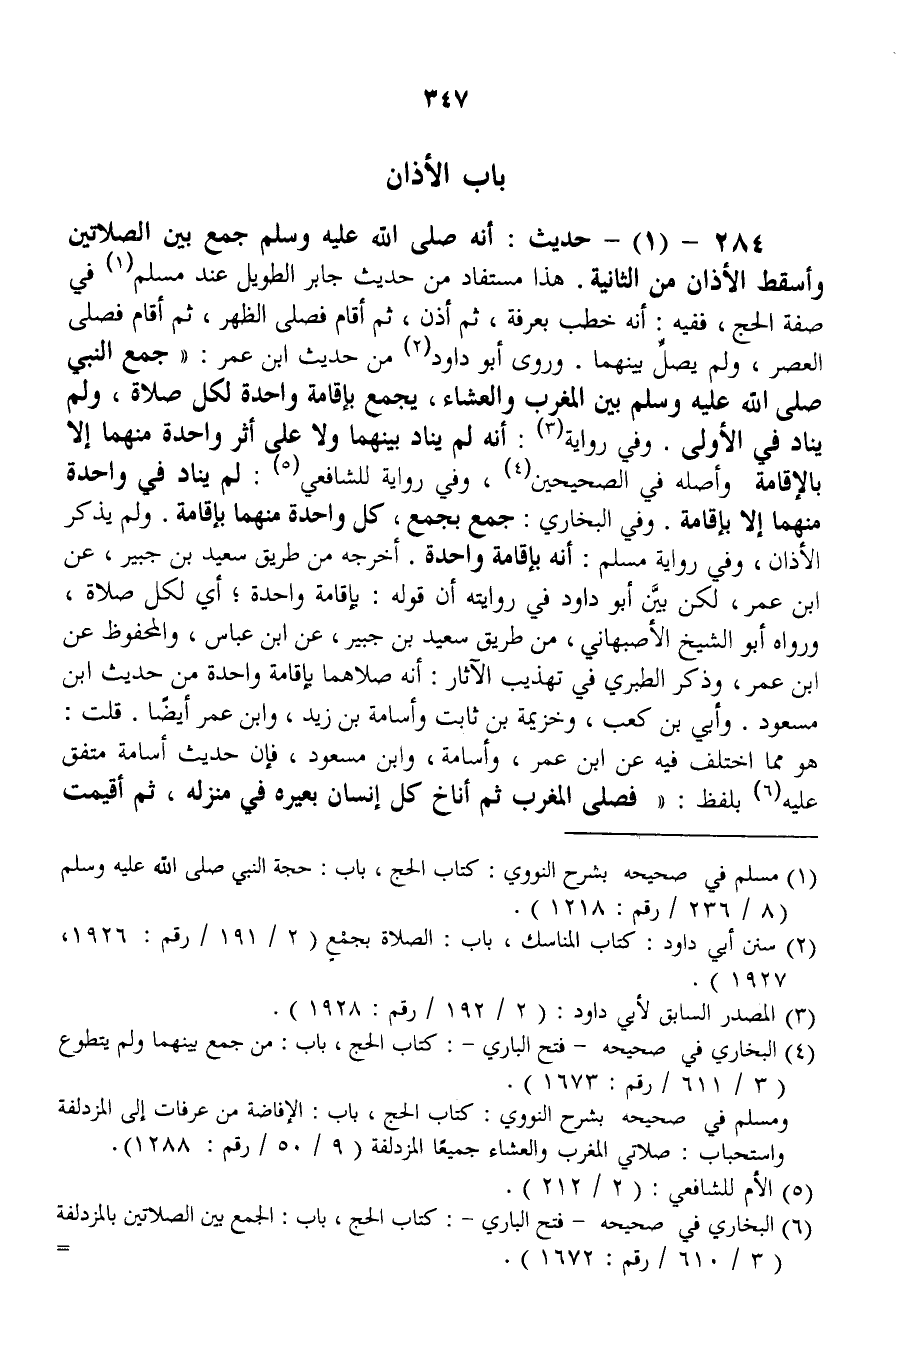 ٣٤٧
باب الأذان
٢٨٤ - (١) - حديث : أنه صلى الله عليه وسلم جمع بين الصلاتين
وأسقط الأذان من الثانية . هذا مستفاد من حديث جابر الطويل عند مسلم(١) في
صفة الحج ، ففيه : أنه خطب بعرفة ، ثم أذن ، ثم أقام فصلى الظهر ، ثم أقام فصلى
العصر ، ولم يصلِّ بينهما . وروى أبو داود(٢) من حديث ابن عمر : « جمع النبي
صلى الله عليه وسلم بين المغرب والعشاء ، يجمع بإقامة واحدة لكل صلاة ، ولم
يناد في الأولى . وفي رواية(٣) : أنه لم يناد بينهما ولا على أثر واحدة منهما إلا
بالإقامة وأصله في الصحيحين(٤) ، وفي رواية للشافعي(٥) : لم يناد في واحدة
منهما إلا بإقامة . وفي البخاري : جمع بجمع ، كل واحدة منهما بإقامة . ولم يذكر
الأذان ، وفي رواية مسلم : أنه بإقامة واحدة . أخرجه من طريق سعيد بن جبير ، عن
ابن عمر ، لكن بيَّن أبو داود في روايته أن قوله : بإقامة واحدة ؛ أي لكل صلاة ،
ورواه أبو الشيخ الأصبهاني ، من طريق سعيد بن جبير ، عن ابن عباس ، والمحفوظ عن
ابن عمر ، وذكر الطبري في تهذيب الآثار : أنه صلاهما بإقامة واحدة من حديث ابن
مسعود . وأبي بن كعب ، وخزيمة بن ثابت وأسامة بن زيد ، وابن عمر أيضًا . قلت :
هو مما اختلف فيه عن ابن عمر ، وأسامة ، وابن مسعود ، فإن حديث أسامة متفق
عليه(٦) بلفظ : « فصلى المغرب ثم أناخ كل إنسان بعيره في منزله ، ثم أقيمت
(١) مسلم في صحيحه بشرح النووي : كتاب الحج ، باب : حجة النبي صلى الله عليه وسلم
( ٨ / ٢٣٦ / رقم : ١٢١٨ ) .
(٢) سنن أبي داود : كتاب المناسك ، باب : الصلاة بجمْعٍ ( ٢ / ١٩١ / رقم : ١٩٢٦،
١٩٢٧ ) .
(٣) المصدر السابق لأبي داود : ( ٢ / ١٩٢ / رقم : ١٩٢٨ ) .
(٤) البخاري في صحيحه - فتح الباري - : كتاب الحج ، باب : من جمع بينهما ولم يتطوع
( ٣ / ٦١١ / رقم : ١٦٧٣ ) .
ومسلم في صحيحه بشرح النووي : كتاب الحج ، باب : الإفاضة من عرفات إلى المزدلفة
واستحباب : صلاتي المغرب والعشاء جميعًا المزدلفة ( ٩ / ٥٠ / رقم : ١٢٨٨ ).
(٥) الأم للشافعي : ( ٢ / ٢١٢ ) .
(٦) البخاري في صحيحه - فتح الباري - : كتاب الحج ، باب : الجمع بين الصلاتين بالمزدلفة
( ٣ / ٦١٠ / رقم : ١٦٧٢ ) .
=